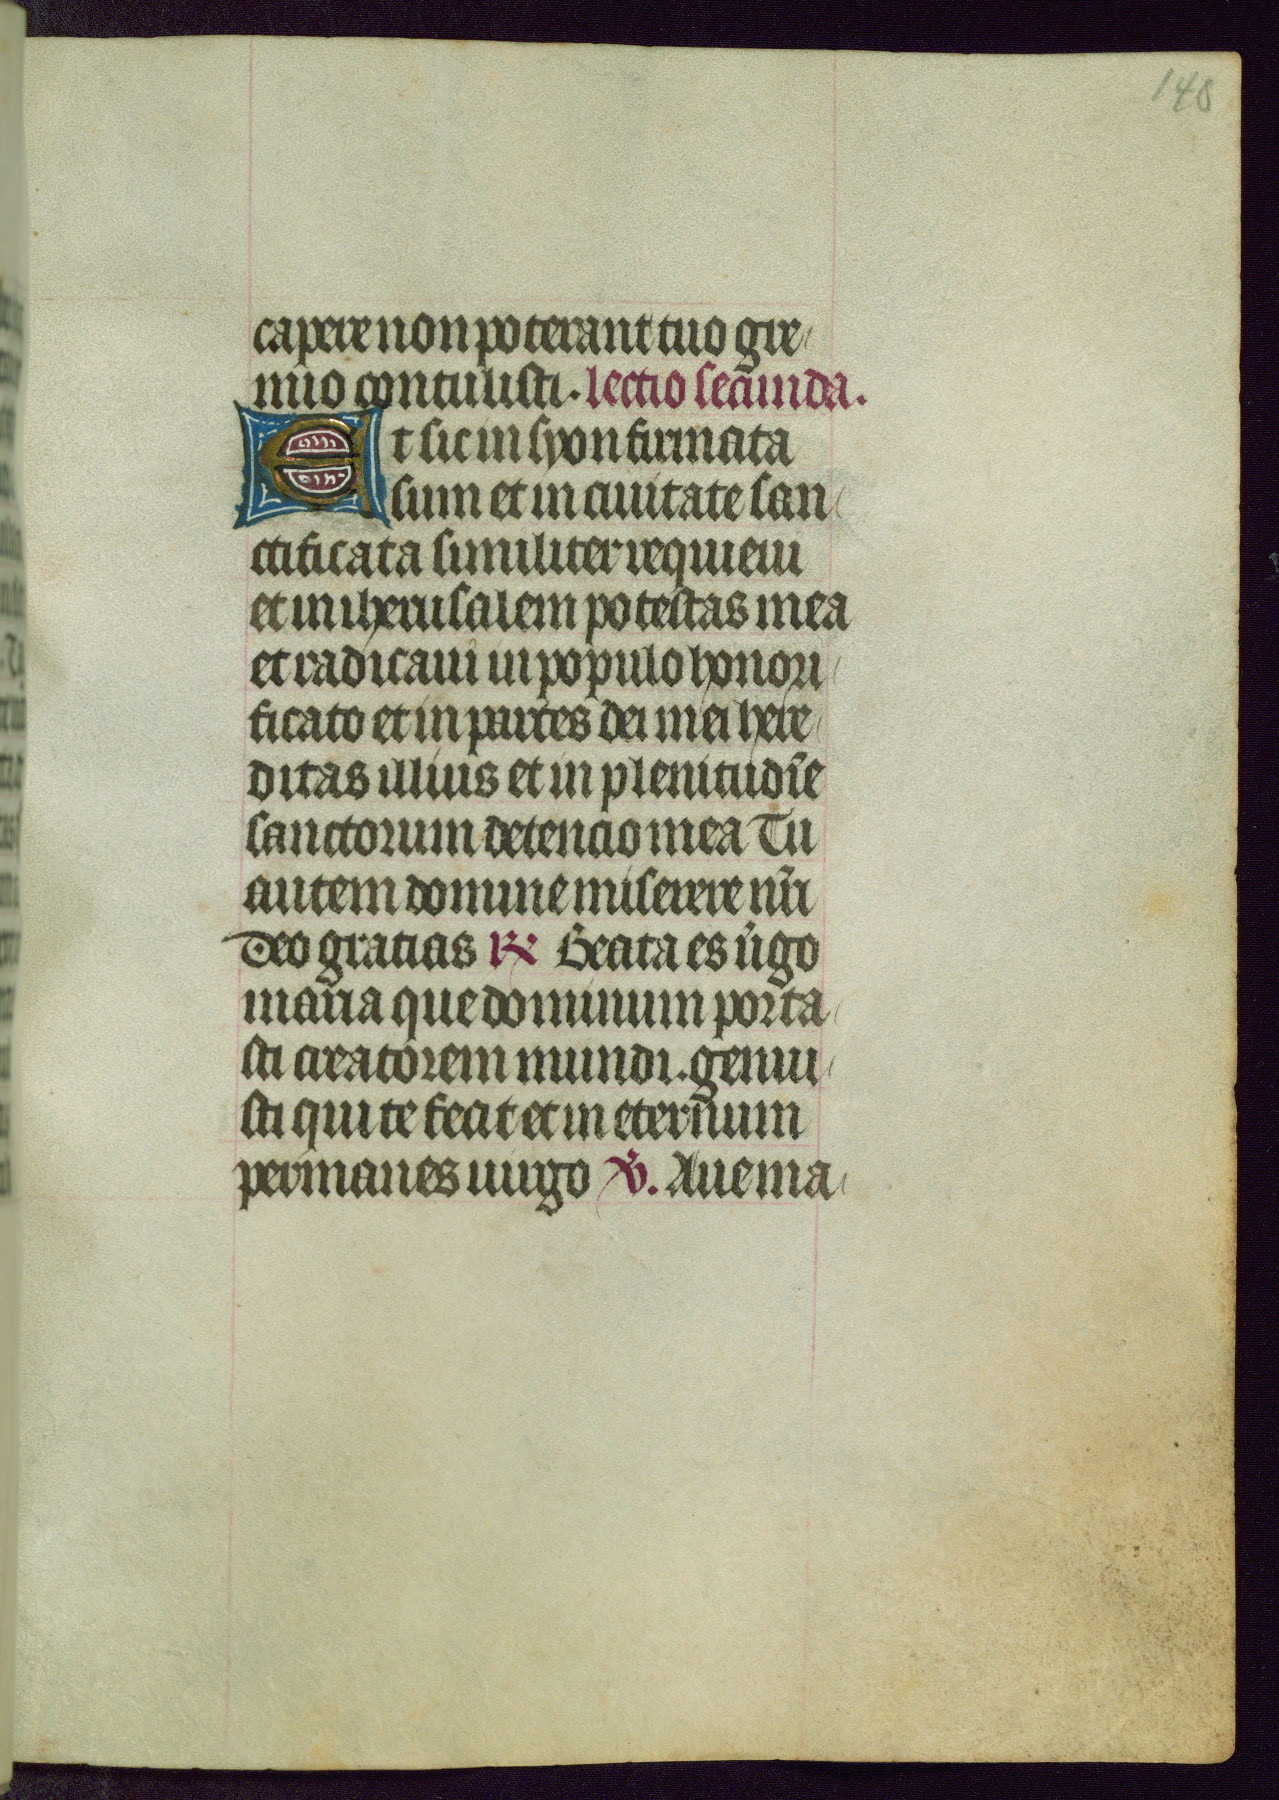 148
capere non poterant tuo gre/
mio contulisti. lectio secunda.
Et sic in syon firmata
sum et in ciuitate san/
ctificata similiter requieui
et in iherusalem potestas mea
et radicaui in populo honori/
ficato et in partes dei mei here/
ditas illius et in plenitudīe
sanctorum detencio mea Tu
autem domine miserere nr̄i
Deo gratias ℟ Beata es ūgo
maria que dominum porta/
sti creatorem mundi. genui/
sti qui te fecit et in eternum
permanes uirgo ℣. Aue ma/